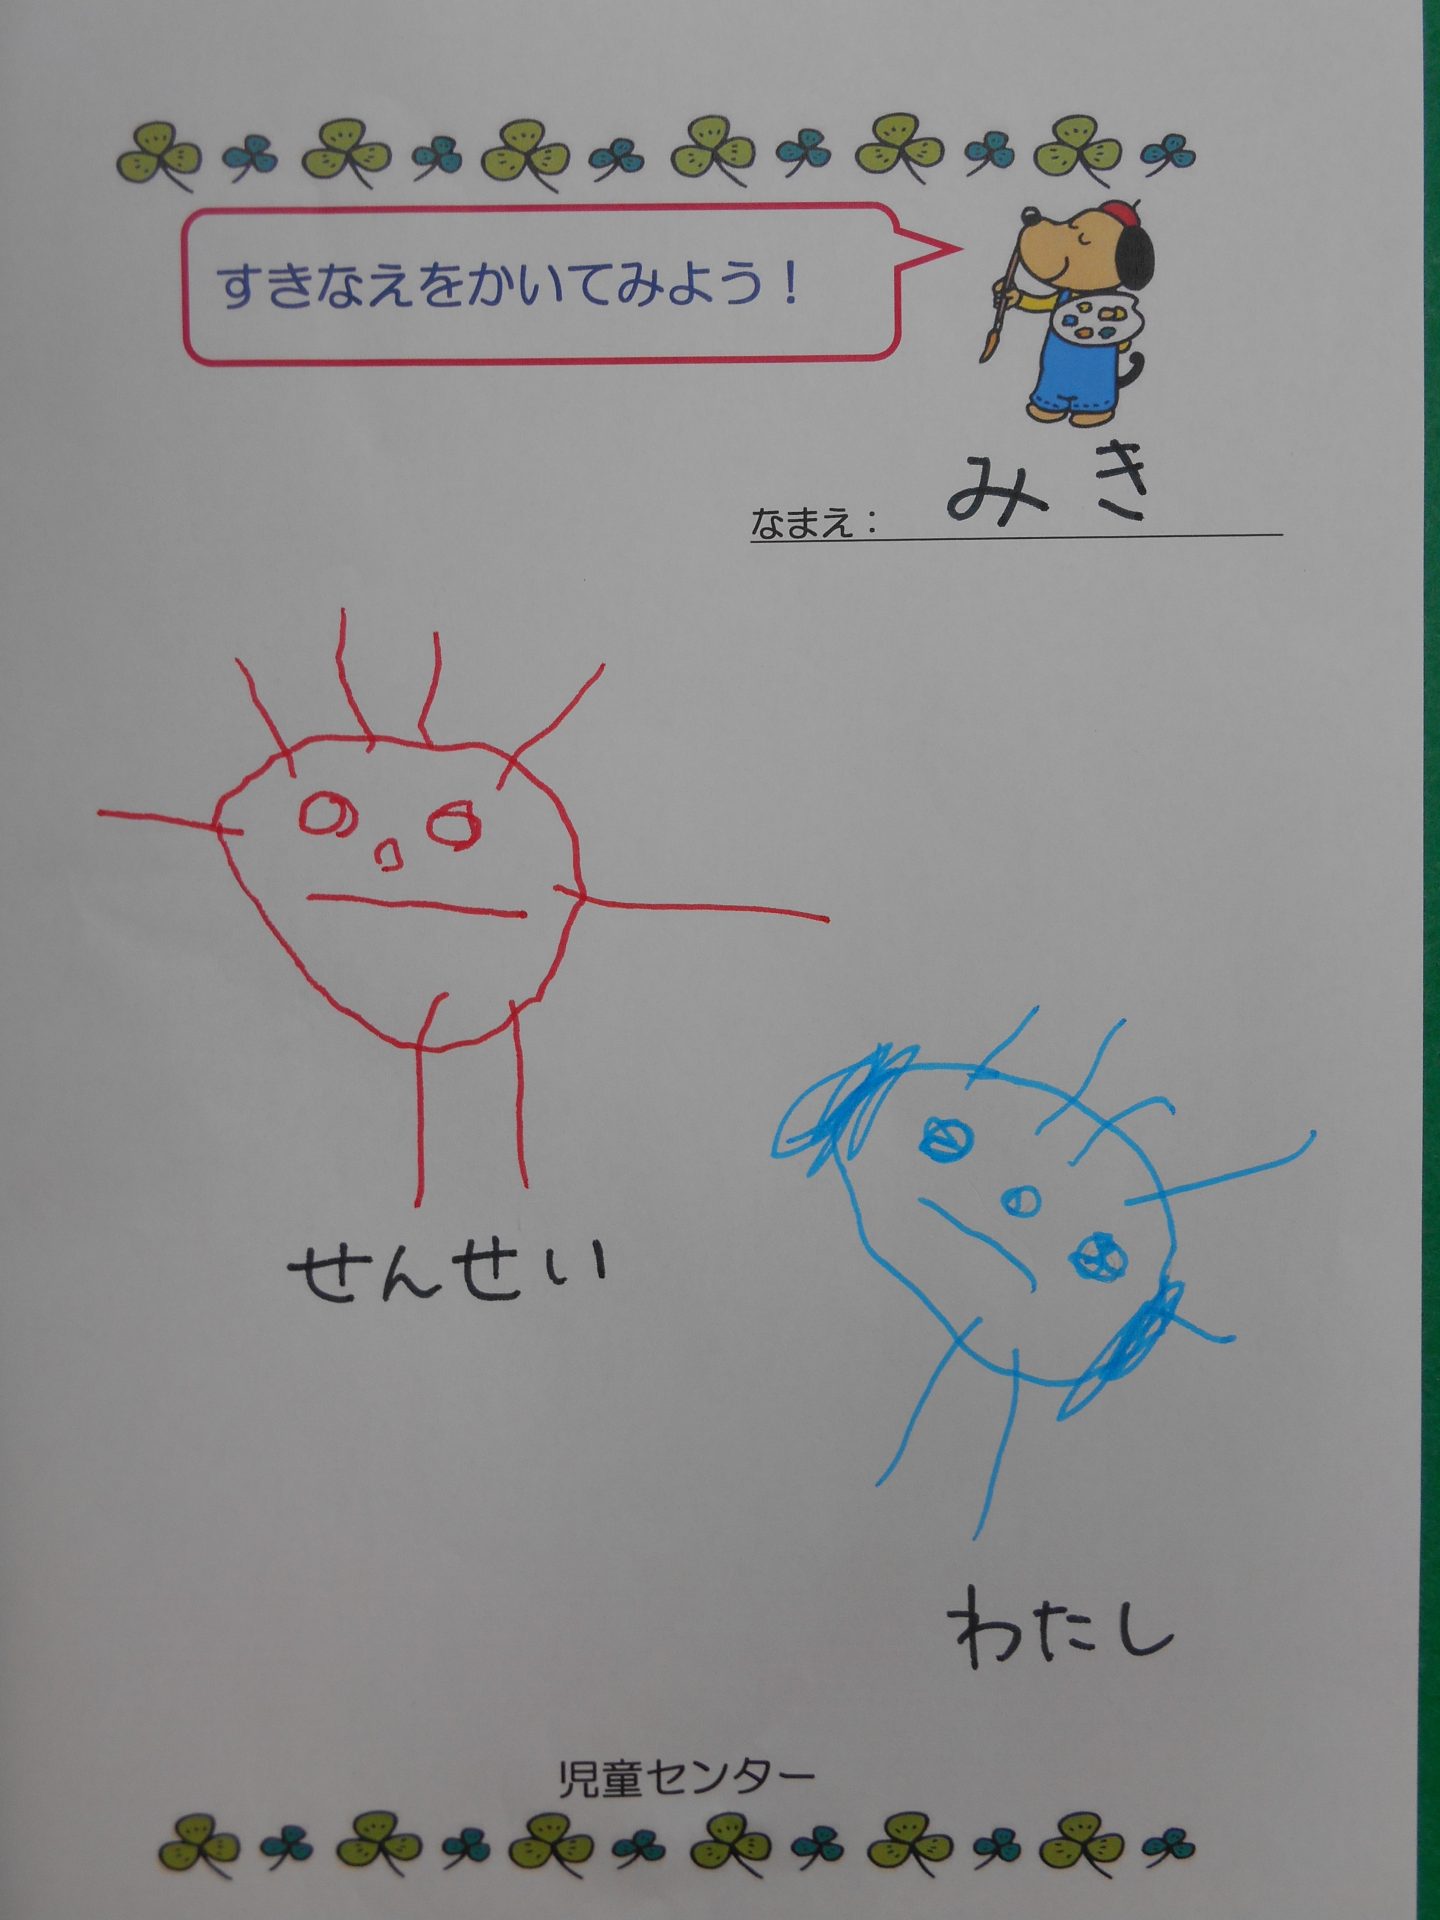 すきなえをかいてみよう！
なまえ： みき
せんせい
わたし
児童センター